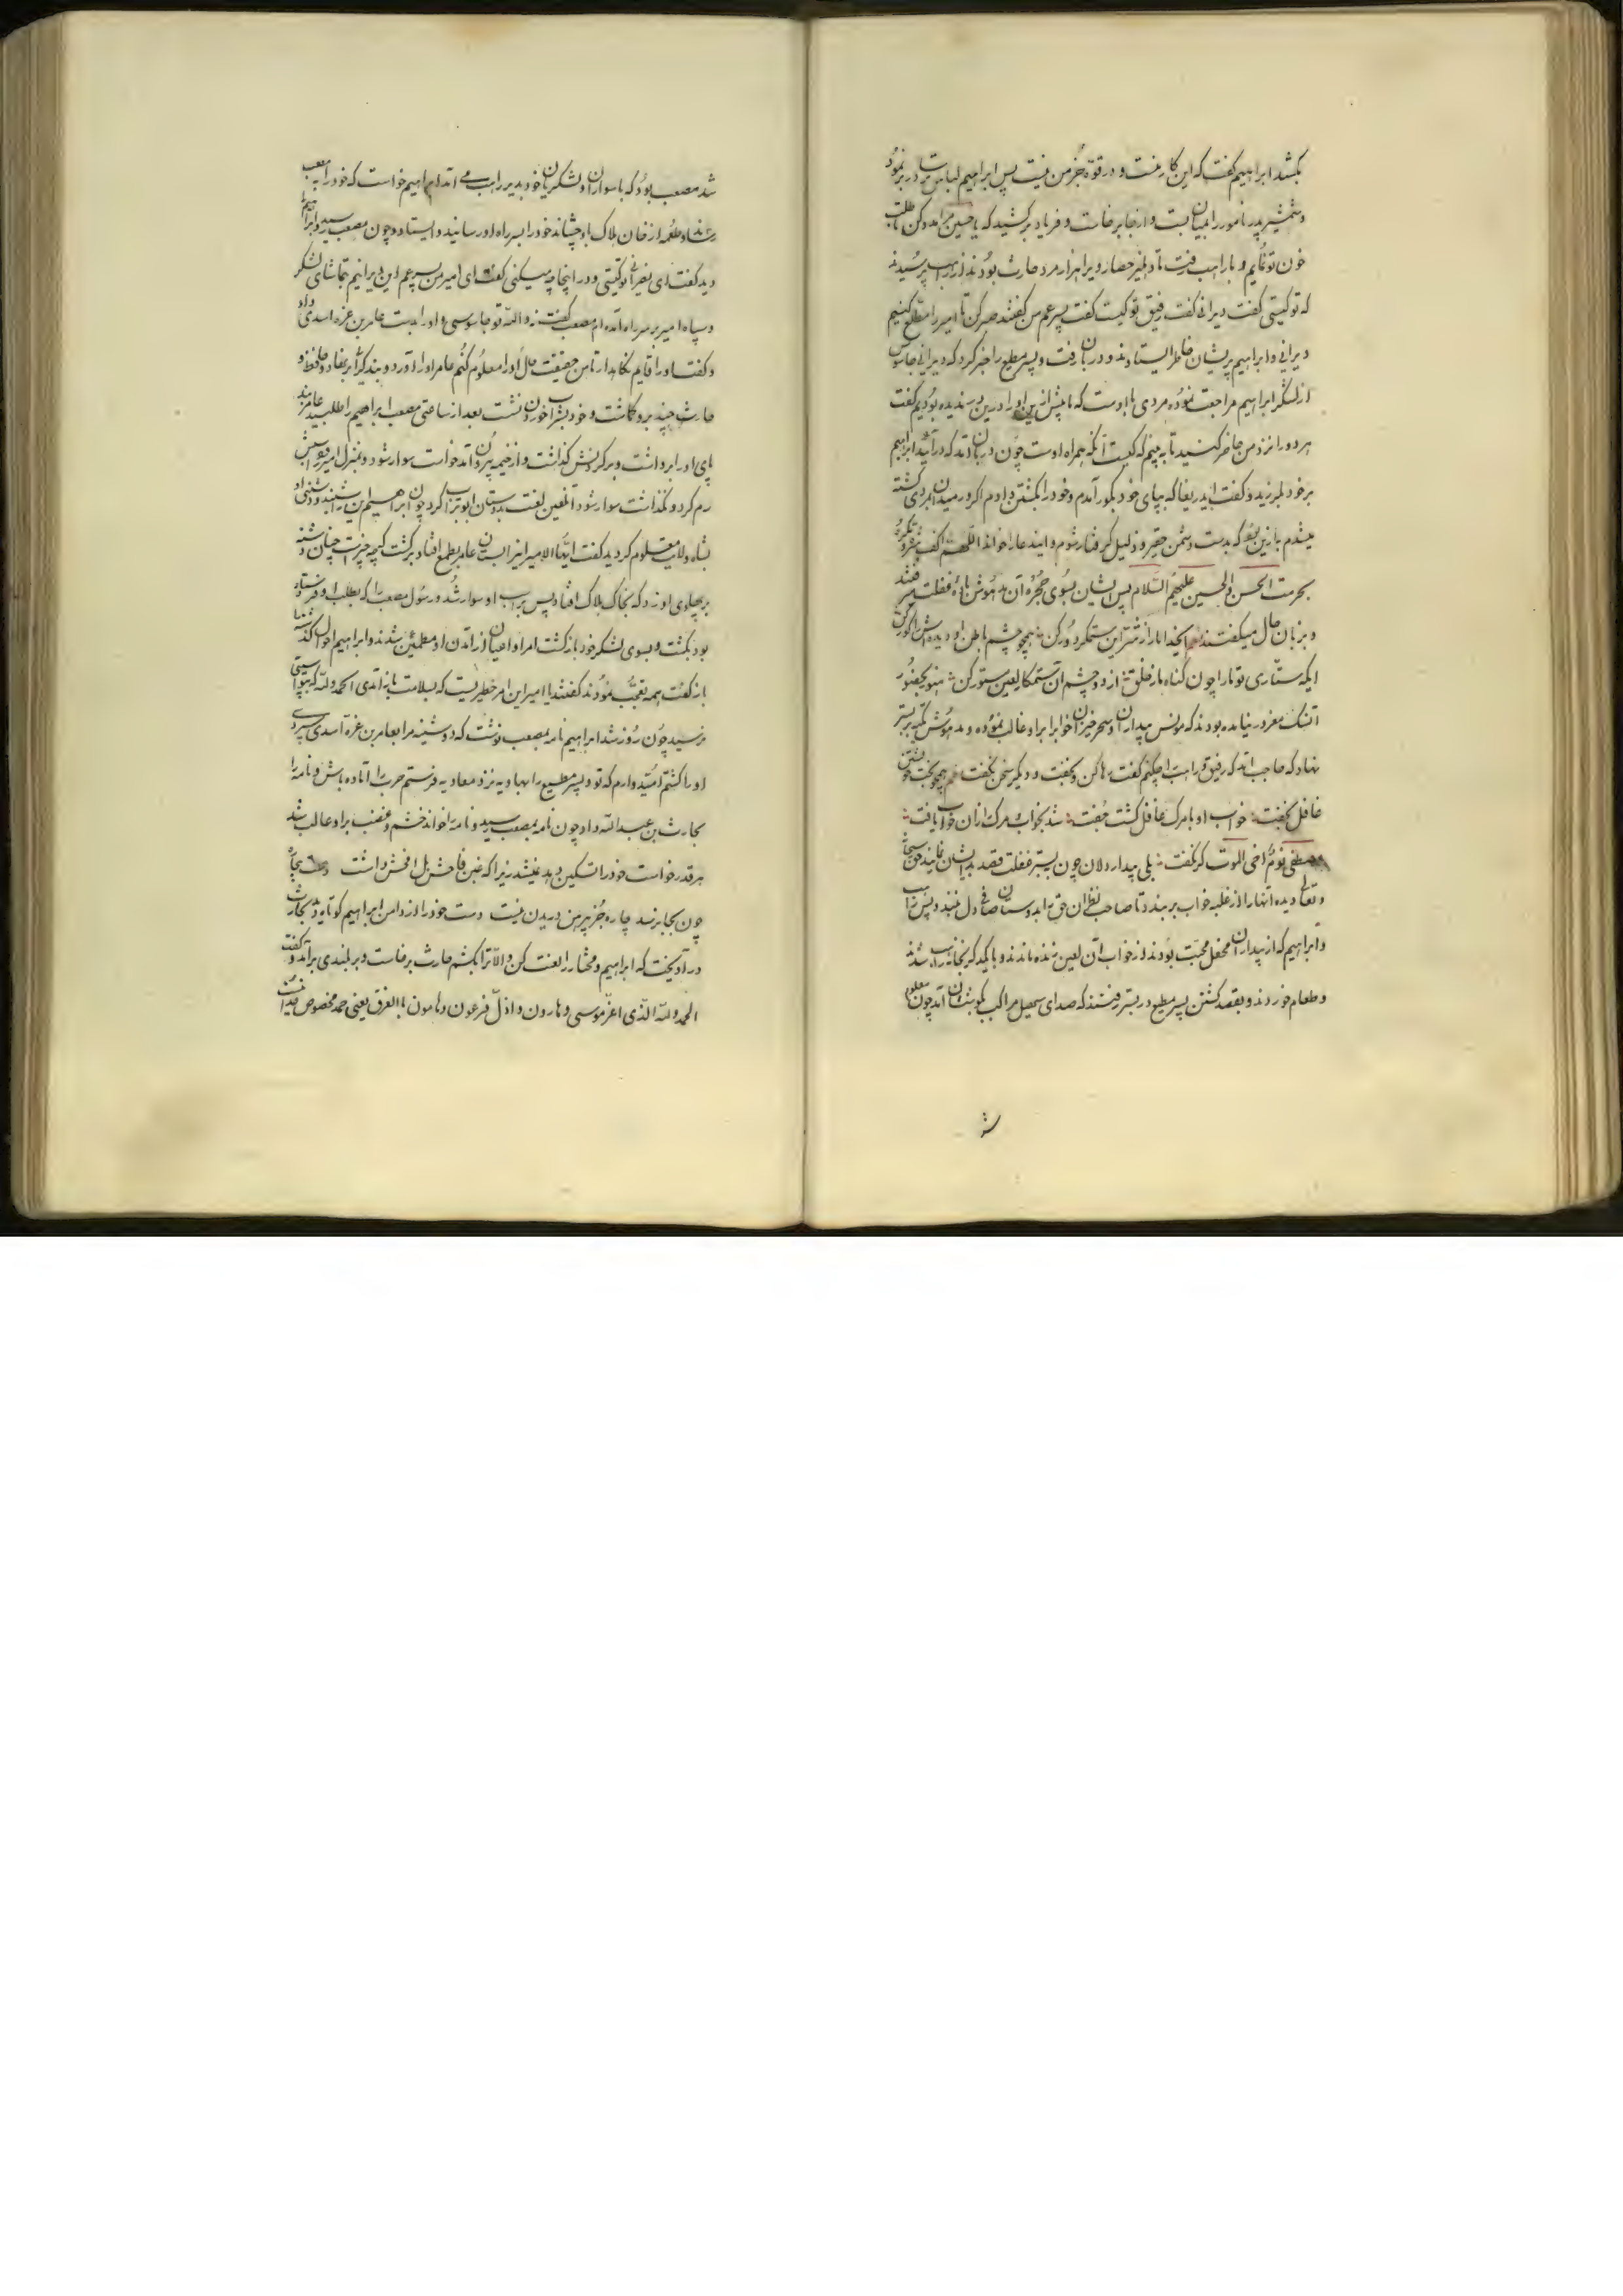 بکشد ابراهیم گفت که این کار منست و در قوة جز من نیست پس ابراهیم لباس در بر نمود
و شمشیر پدر نامور را بمیان بست و از جا برخاست و فریاد برکشید که یا حسین مرا مدد کن تا طلب
خون تو نمایم و با راهب رفت تا دهلیز حصار و پرا هزار مرد حارث بودند از راهب پرسیدند
که تو کیستی گفت دیرانی گفت رفیق تو کیست گفت پسر عم من گفتند صبر کن تا امیر را مطلع کنیم
دیرانی و ابراهیم پریشان خاطر ایستادند و دربان رفت و پسر مطیع را خبر کرد که دیرانی جاسوس
از لشکر ابراهیم مراجعت نموده مردی با اوست که ما پیش ازین او را درین دیر ندیده بودیم گفت
هر دو را نزد من حاضر کنید تا به بینم که کیست آنکه همراه اوست چون دربان آمد که درآئید ابراهیم
بر خود لرزید و گفت ای دریغا که بپای خود بگور آمدم و خود را بکشتن دادم اگر در میدان مردی کشته
میشدم به ازین بود که بدست دشمن حقیر و ذلیل گرفتار شوم و این دعا را خواند اللهم اکف
بحرمت الحسن و الحسین علیهم السلام پس ایشان بسوی حجره آن مدهوش باده غفلت میرفتند
و بزبان حال میگفتند ایخدا ما را ز شر این ستمگر دور کن همچو چشم باطن او دیده اش را کور کن
ایکه ستاری تو ما را چون گناه ما ز خلق از دو چشم آن ستمکار لعین مستور کن هنوز بحضور
آن سگ مغرور نیامده بودند که مونس بیداران و سحرخیزان خواب را بر او غالب نموده و مدهوش تکیه بر بستر
نهاد که حاجب آمد که رفیق و راهب را چکنم گفت رها کن و بخفت و دیگر سخن نگفت همچو بخت خویشتن
غافل بخفت خواب او با مرگ غافل گشت جفت شد بخواب و مرگ از آن خواب یافت
مصطفی نوم اخی الموت گر بگفت بلی بیدار دلان چون بستر غفلت قصد ایشان نمایند حق سبحانه
و تعالی دیده آنها را از غلبه خواب بر بندد تا صاحب نظران حق و دوستان صافی دل نبینند و پس راهب
و ابراهیم که از بیداران محفل محبت بودند از خواب آن لعین زنده ماندند و با یکدیگر بخانه راهب شدند
و طعام خوردند و بقصد کشتن پسر مطیع در بستر رفتند که صدای سهیل مراکب بگوششان آمد چون معلوم
شد
شد مصعب بود که با سواران و لشکریان خود بدیر راهب می آمد ابراهیم خواست که خود را به مصعب
رساند و طعمه از خان هلاک باو چشاند خود را بسر راه او رسانید و ایستاد و چون مصعب رسید و ابراهیم را
دید گفت ای نصرانی تو کیستی و در اینجا چه میکنی گفت ای امیر من پسر عم این دیرانیم بتماشای لشکر
و سپاه امیر بر سر راه آمده ام مصعب گفت نه والله تو جاسوسی و او را بدست عامر بن عزه اسدی داد
و گفت او را قایم نگاهدار تا من حقیقت حال او را معلوم کنم عامر او را آورد و بند گران بر نهاد و حافظ و
حارث چند برو گماشت و خود بشراب خوردن نشست بعد از ساعتی مصعب ابراهیم را طلبید عامر بند
پای او را برداشت و بر گردنش گذاشت و از خیمه بیرون آمد خواست سوار شود و بمنزل امیر رود اسبش
رم کرد و نگذاشت سوار شود آن لعین لعنت بدوستان ابوتراب کرد چون ابراهیم این بشنید و دشمنی او
بشاه ولایت معلوم گردید گفت ایها الامیر انبان عامر بطمع افتاد برگشت که چه چیز است چنان دشنه
بر پهلوی او زد که بخاک هلاک افتاد پس بر اسب او سوار شد و رسول مصعب را که بطلب او فرستاده
بود بکشت و بسوی لشکر خود بازگشت امرا و اعیان از آمدن او مطمئن شدند و ابراهیم احوال گذشته
باز گفت همه تعجب نمودند گفتند یا امیر این امر خطیریست که بسلامت باز آمدی الحمد لله که بتو آسیبی
نرسید چون روز شد ابراهیم نامه بمصعب نوشت که دوشینه مرا بعامر بن عزه اسدی سپردی
او را کشتم امید دارم که تو و پسر مطیع را بهاویه نزد معاویه فرستم حرب را آماده باش و نامه را
بحارث بن عبد الله داد چون نامه بمصعب رسید و نامه را خواند خشم و غضب بر او غالب شد
هر قدر خواست خود را تسکین دهد نمیشد زیرا که غبن فاحش بل افحش داشت
چون بجا نرسد چاره جز پیرهن دریدن نیست دست خود را از دامن ابراهیم کوتاه دید بحارث
در آویخت که ابراهیم و مختار را لعنت کن و الا ترا بکشم حارث برخاست و بر بلندی برآمد و گفت
الحمد لله الذی اعز موسی و هارون و اذل فرعون و هامون بالغرق یعنی حمد مخصوص خداست